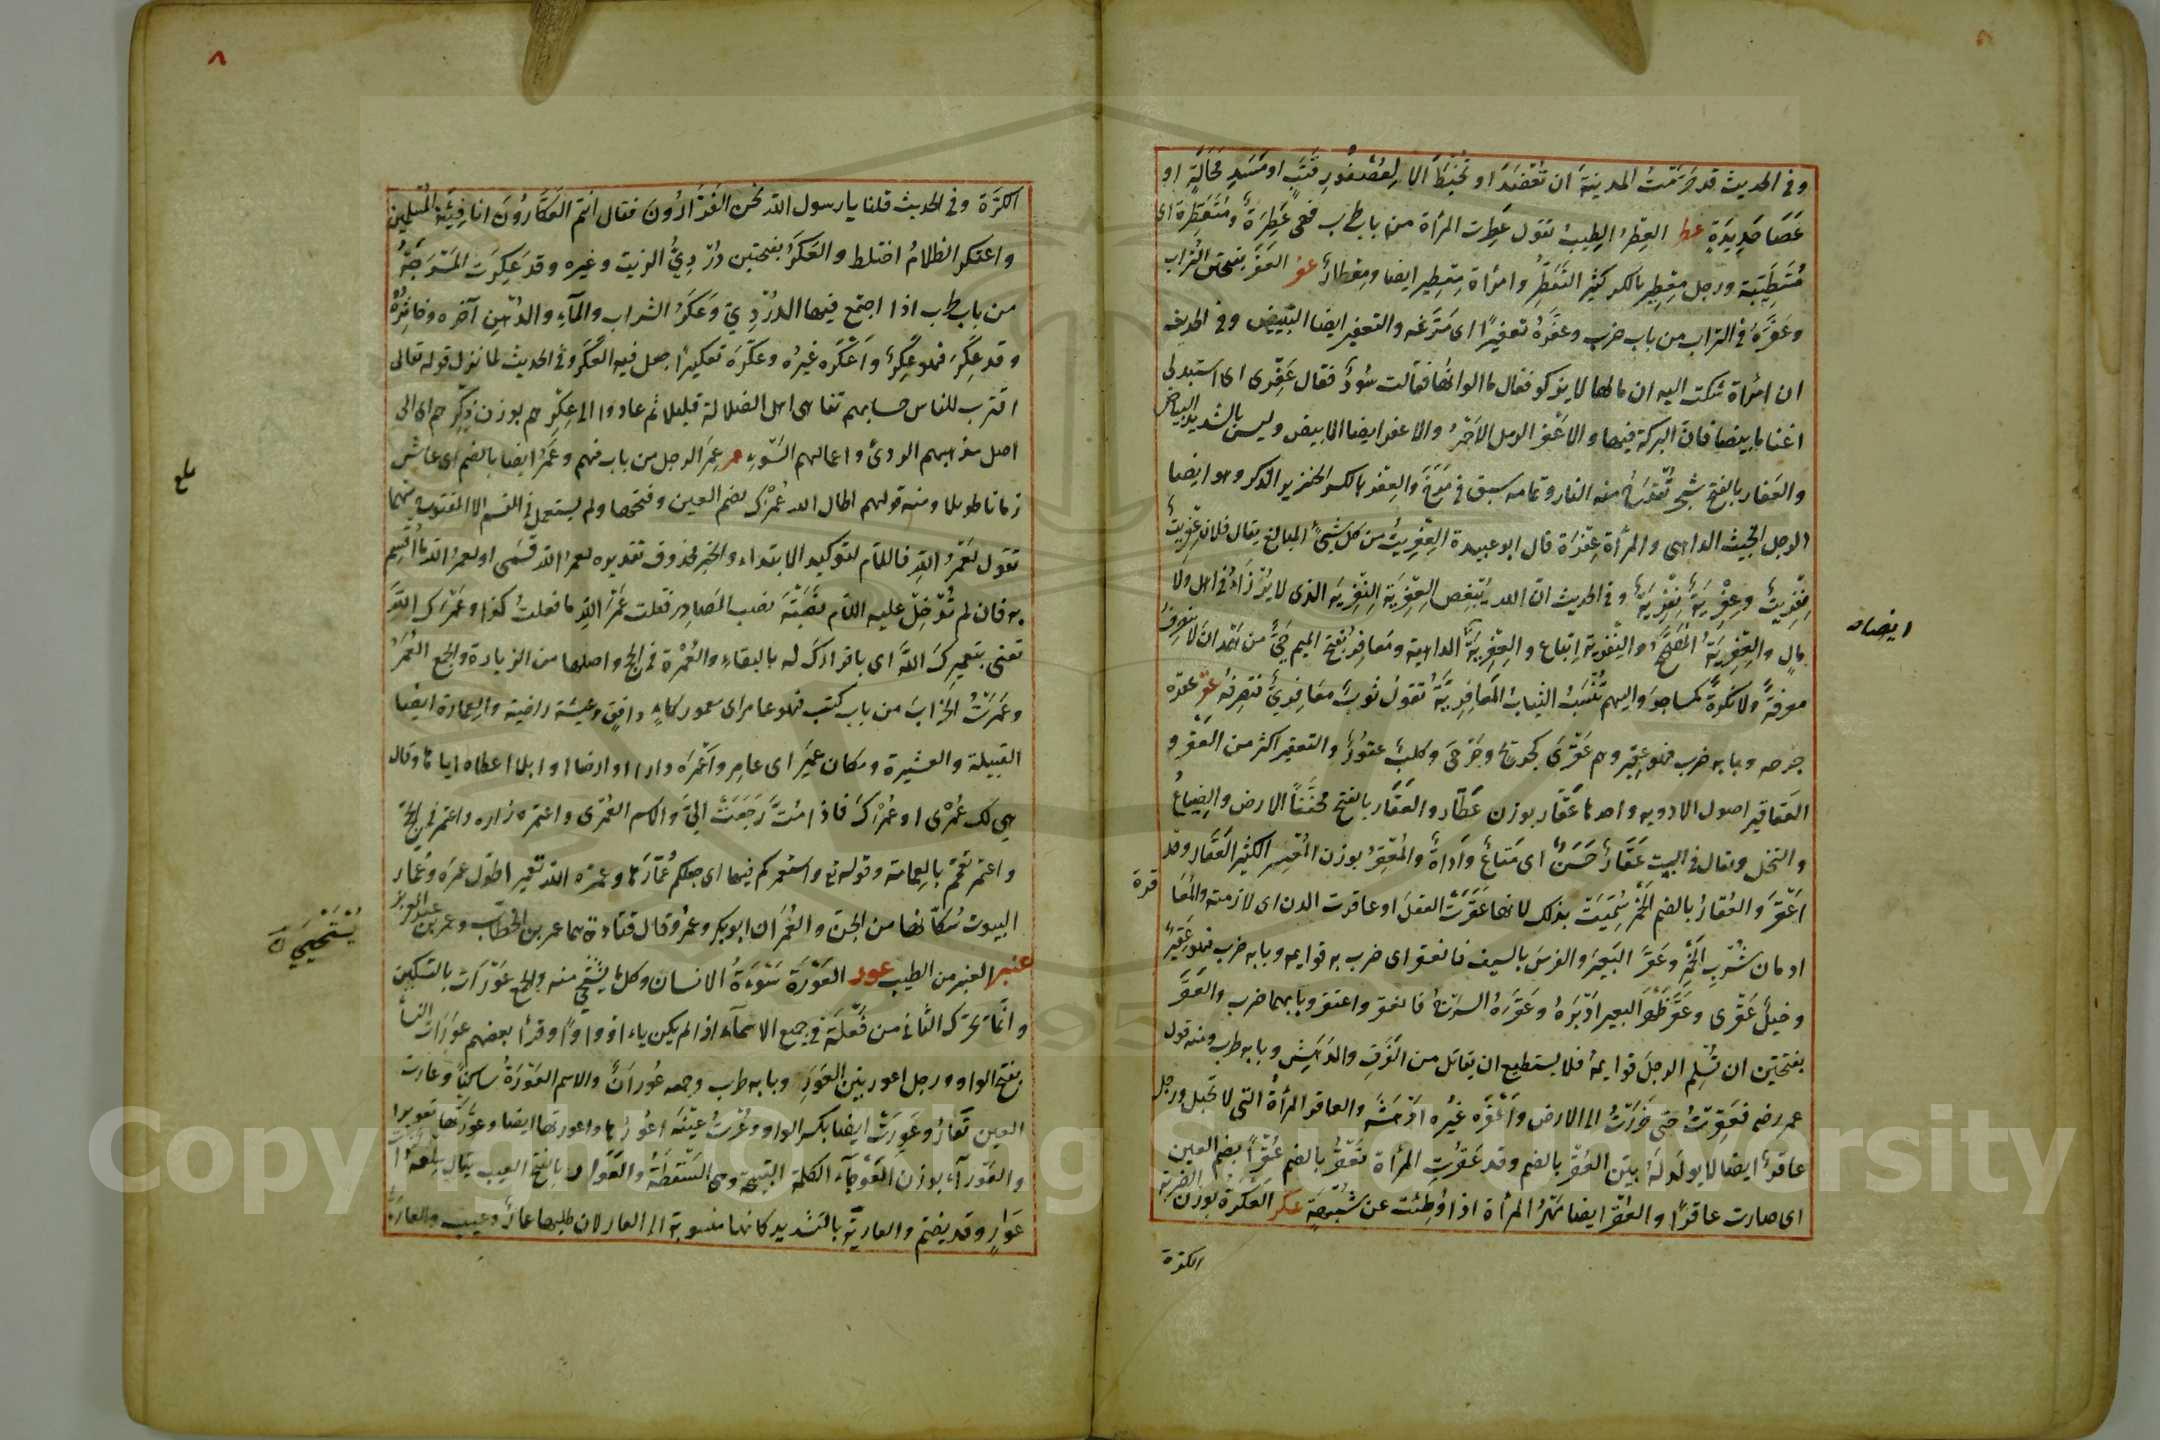 وفي الحديث قد حَرَّمْتُ المدينةَ ان تُعْضَدَ او تُخْبَطَ الا لِعُصْفُورِ قَتَبٍ او مَسَدِ مَحَالَةٍ او
عَصَا حَدِيدَةٍ عطر العِطْرُ الطِيبُ تقول عَطِرت المرأة من باب طرب فهي عَطِرَةٌ ومُتَعَطِّرة اى
مُتَطَيِّبَة ورجل مِعْطِير بالكسر كثير التَّعَطُّرِ وامرأة مِعْطِير ايضا ومِعْطارٌ عفر العَفَرُ بفتحتين التراب
وعَفَرَهُ في التراب من باب ضرب وعَفَّرَهُ تعفيرًا اى مَرَّغَه والتعفير ايضا التبييض وفي الحديث
ان امرأة شكت اليه ان مالها لا يزكو فقال ما الوانها فقالت سُودٌ فقال عَفِّرى اى استبدلى
اغناما بيضا فان البركة فيها والاعفر الرمل الاحمر والاعفر ايضا الابيض وليس بالشديد البياض
والعَفار بالفتح شجر تُقْدَحُ منه النار وتمامه سبق في مَرَخَ والعِفْر بالكسر الخنزير الذكر وهو ايضا
الرجل الخبيث الداهى والمرأة عِفْرَة قال ابو عبيدة العِفْرِيتُ من كل شئٍ المبالغ يقال فلان عِفْرِيتٌ
نِفْرِيتٌ وعِفْرِيَةٌ نِفْرِيَةٌ وفي الحديث ان الله يُبْغِض العِفْرِيَةَ النِفْرِيَةَ الذى لا يُرْزَأُ في اهل ولا
مالٍ والعِفْرِيَةُ المُصَحَّحُ والنِفْرِية اِتباع والعِفْرِيَةُ ايضا الداهية ومَعافِر بفتح الميم حَيٌّ من هَمْدانَ لا ينصرف
معرفةً ولا نكرةً كمساجد واليهم تُنْسَبُ الثياب المَعَافِرِيَّةُ تقول ثوبٌ مَعَافِرِيٌّ فتصرفه عقر عقره
جرحه وبابه ضرب فهو عقير وهم عَقْرَى كجريح وجَرْحَى وكلبٌ عقورٌ والتعقير اكثر من العقر و
العَقاقير اصول الادويه واحدها عَقَّار بوزن عَطَّار والعَقَار بالفتح مُخَفَّفًا الارض والضِياعُ
والنخل ويقال في البيت عَقَارٌ حَسَنٌ اى مَتاعٌ وأداةٌ والمُعْقِرُ بوزن المُعْسِر الكثير العَقَار وقد
اَعْقَرَ والعُقارُ بالضم الخَمْرُ سُمِّيَتْ بذلك لانها عَقَرَتْ العقلَ او عاقرت الدن اى لازمته والمُعَا
قرة
ادمان شُرْبِ الخمر وعَقَرَ البَعيرَ والفرسَ بالسيف فانعقر اى ضرب به قوايمه وبابه ضرب فهو عَقِيرٌ
وخيلٌ عَقْرَى وعَقَرَ ظَهْرَ البعير اَدْبَرَهُ وعَقَرَهُ السرجُ فانعقر واعتقر وبابهما ضرب والعَقَرُ
بفتحتين ان تُسْلِمَ الرجلَ قوايمهُ فلا يستطيع ان يقاتل من الفَرَقِ والدَهَشِ وبابه طرب ومنه قول
عمر رضه فعَقِرْتُ حتى خَرَرْتُ الى الارض واَعْقَرَه غيرُه اَدْهَشَه والعاقر المرأةُ التى لا تَحْبَل ورجل
عاقرٌ ايضا لا يولَد لَهُ بيّن العُقْر بالضم وقد عَقُرَتِ المرأة تَعْقُرُ بالضم عُقْرًا بضم العين
اى صارت عاقرًا والعُقْر ايضا مَهْرُ المرأة اذا وُطِئت عن شُبْهةٍ عكر العَكَرَةُ بوزن الضربة
الكرّة
ايضا
٨
٨
الكَرَّة وفي الحديث قلنا يا رسول الله نحن الفَرَّارُونَ فقال انتم العَكَّارُونَ انا فِئَةُ المسلمين
واعتكر الظلامُ اختلط والعَكَرُ بفتحتين دُرْدِيُّ الزيت وغيره وقد عَكِرَت المَسْرَجَةُ
من باب طرب اذا اجتمع فيها الدُرْدِيّ وعَكَرُ الشراب والمآءِ والدهن آخره وخاثِرُهُ
وقد عَكِرَ فهو عَكِرٌ واَعْكَرَه غيرُه وعَكَّرَه تعكيرًا جعل فيه العَكَرَ وفي الحديث لما نزل قوله تعالى
اقترب للناس حسابهم تناهى اهل الضلالة قليلا ثم عادوا الى عِكْرِهم بوزن ذِكْرِهم اى الى
اصل مذهبهم الردئ واعمالهم السَّوْء عمر عَمِرَ الرجل من باب فهم وعُمْرًا ايضا بالضم اى عاش
زمانا طويلا ومنه قولهم اطال الله عُمْرَكَ بضم العين وفتحها ولم يستعمل في القسم الا المفتوح منهما
تقول لَعَمْرُ اللهِ فاللام لتوكيد الابتداء والخبر محذوف تقديره لعمرُ الله قَسَمى او لعمرُ الله ما اُقسِم
به فان لم تُدْخِلْ عليه اللام نَصَبْتَه نصب المصادر فقلت عَمْرَ اللهِ ما فعلتُ كذا وعَمْرَكَ اللهَ
تعنى بتعميرِكَ اللهَ اى باقرارك له بالبقاءِ والعُمْرة في الحج واصلها من الزيارة والجمع العُمَرُ
وعَمَرْتُ الخَرَابَ من باب كتب فهو عامر اى معمور كماءٍ دافقٍ وعيشة راضية والعِمارة ايضا
القبيلة والعشيرة ومكان عَمِير اى عامر واَعْمَرَه دارا او ارضا او ابلا اعطاه اياها وقال
هى لك عُمْرِى او عُمْرَكَ فاذا مُتَّ رَجَعَتْ اِلىَّ والاسم العُمْرَى واعتمره زاره واعتمر في الحج
واعتمر تعمم بالعِمامة وقوله تع واستعمركم فيها اى جعلكم عُمَّارَها وعمّره الله تعميرا طَوَّل عمرَه وعُمَّار
البيوت سُكَّانها من الجن والعُمَرانِ ابوبكر وعمر وقال قتادة هما عمر بن الخطاب وعمر بن عبد العزيز
عنبر العنبر من الطيب عور العَوْرَة سَوْءَةُ الانسان وكل ما يُسْتَحْيَى منه والجمع عَوْرَات بالتسكين
وانما تحرك الثانى من فَعْلَة في جميع الاسماء اذا لم يكن ياء او واوًا وقرأ بعضهم عَوَرَات النساء
بفتح الواو ورجل اعور بيّن العَوَرِ وبابه طرب وجمعه عُورانٌ والاسم العَوْرَةُ ساكنًا وعارت
العين تَعَارُ وعَوِرَتْ ايضا بكسر الواو وعُرْتُ عينَه اعُورُها واعورتها ايضا وعوَّرتُها تعويرا
والعَوْرآء بوزن العَوْجآء الكلمة القبيحة وهى السَّقْطَةُ والعَوار بالفتح العيب يقال سِلعة ذات
عَوارٍ وقد يضم والعاريّة بالتشديد كانها منسوبة الى العار لان طلبها عارٌ وعيب والعارَةُ
بلغ
يُسْتَحْيَى ن
Copyright © King Saud University
1957